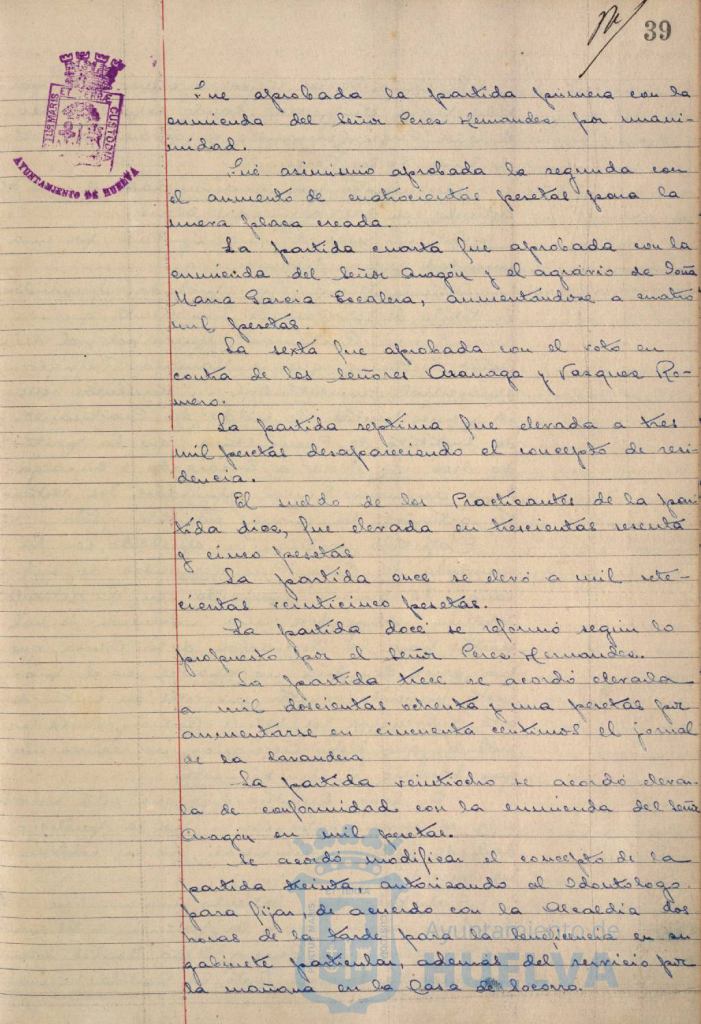 39
SIGNUM ET CUSTODIA
AYUNTAMIENTO DE HUELVA
Fue aprobada la partida primera con la
enmienda del Señor Perez Hernandez por unani-
midad.
Fué asimismo aprobada la segunda con
el aumento de cuatrocientas pesetas para la
nueva plaza creada.
La partida cuarta fue aprobada con la
enmienda del Señor Aragón y el agrario de Doña
Maria Garcia Escalera, aumentandose a cuatro
mil pesetas.
La sexta fue aprobada con el voto en
contra de los Señores Asauaga y Vazquez Ro-
mero.
La partida septima fue elevada a tres
mil pesetas desapareciendo el concepto de resi-
dencia.
El sueldo de los Practicantes de la par-
tida diez, fue elevada en trescientas sesenta
y cinco pesetas
La partida once se elevó a mil sete-
cientas veinticinco pesetas.
La partida doce se reformó según lo
propuesto por el Señor Perez Hernandez.
La partida trece se acordó elevarla
a mil doscientas ochenta y una pesetas por
aumentarse en cincuenta centimos el jornal
de la lavandera
La partida veintiocho se acordó elevar-
la de conformidad con la enmienda del Señor
Aragón en mil pesetas.
Se acordó modificar el concepto de la
partida treinta, autorizando al Odontologo
para fijar, de acuerdo con la Alcaldia dos
horas de la tarde para la beneficencia en su
gabinete particular, ademas del servicio por
la mañana en la Casa de Socorro.
Ayuntamiento de
HUELVA